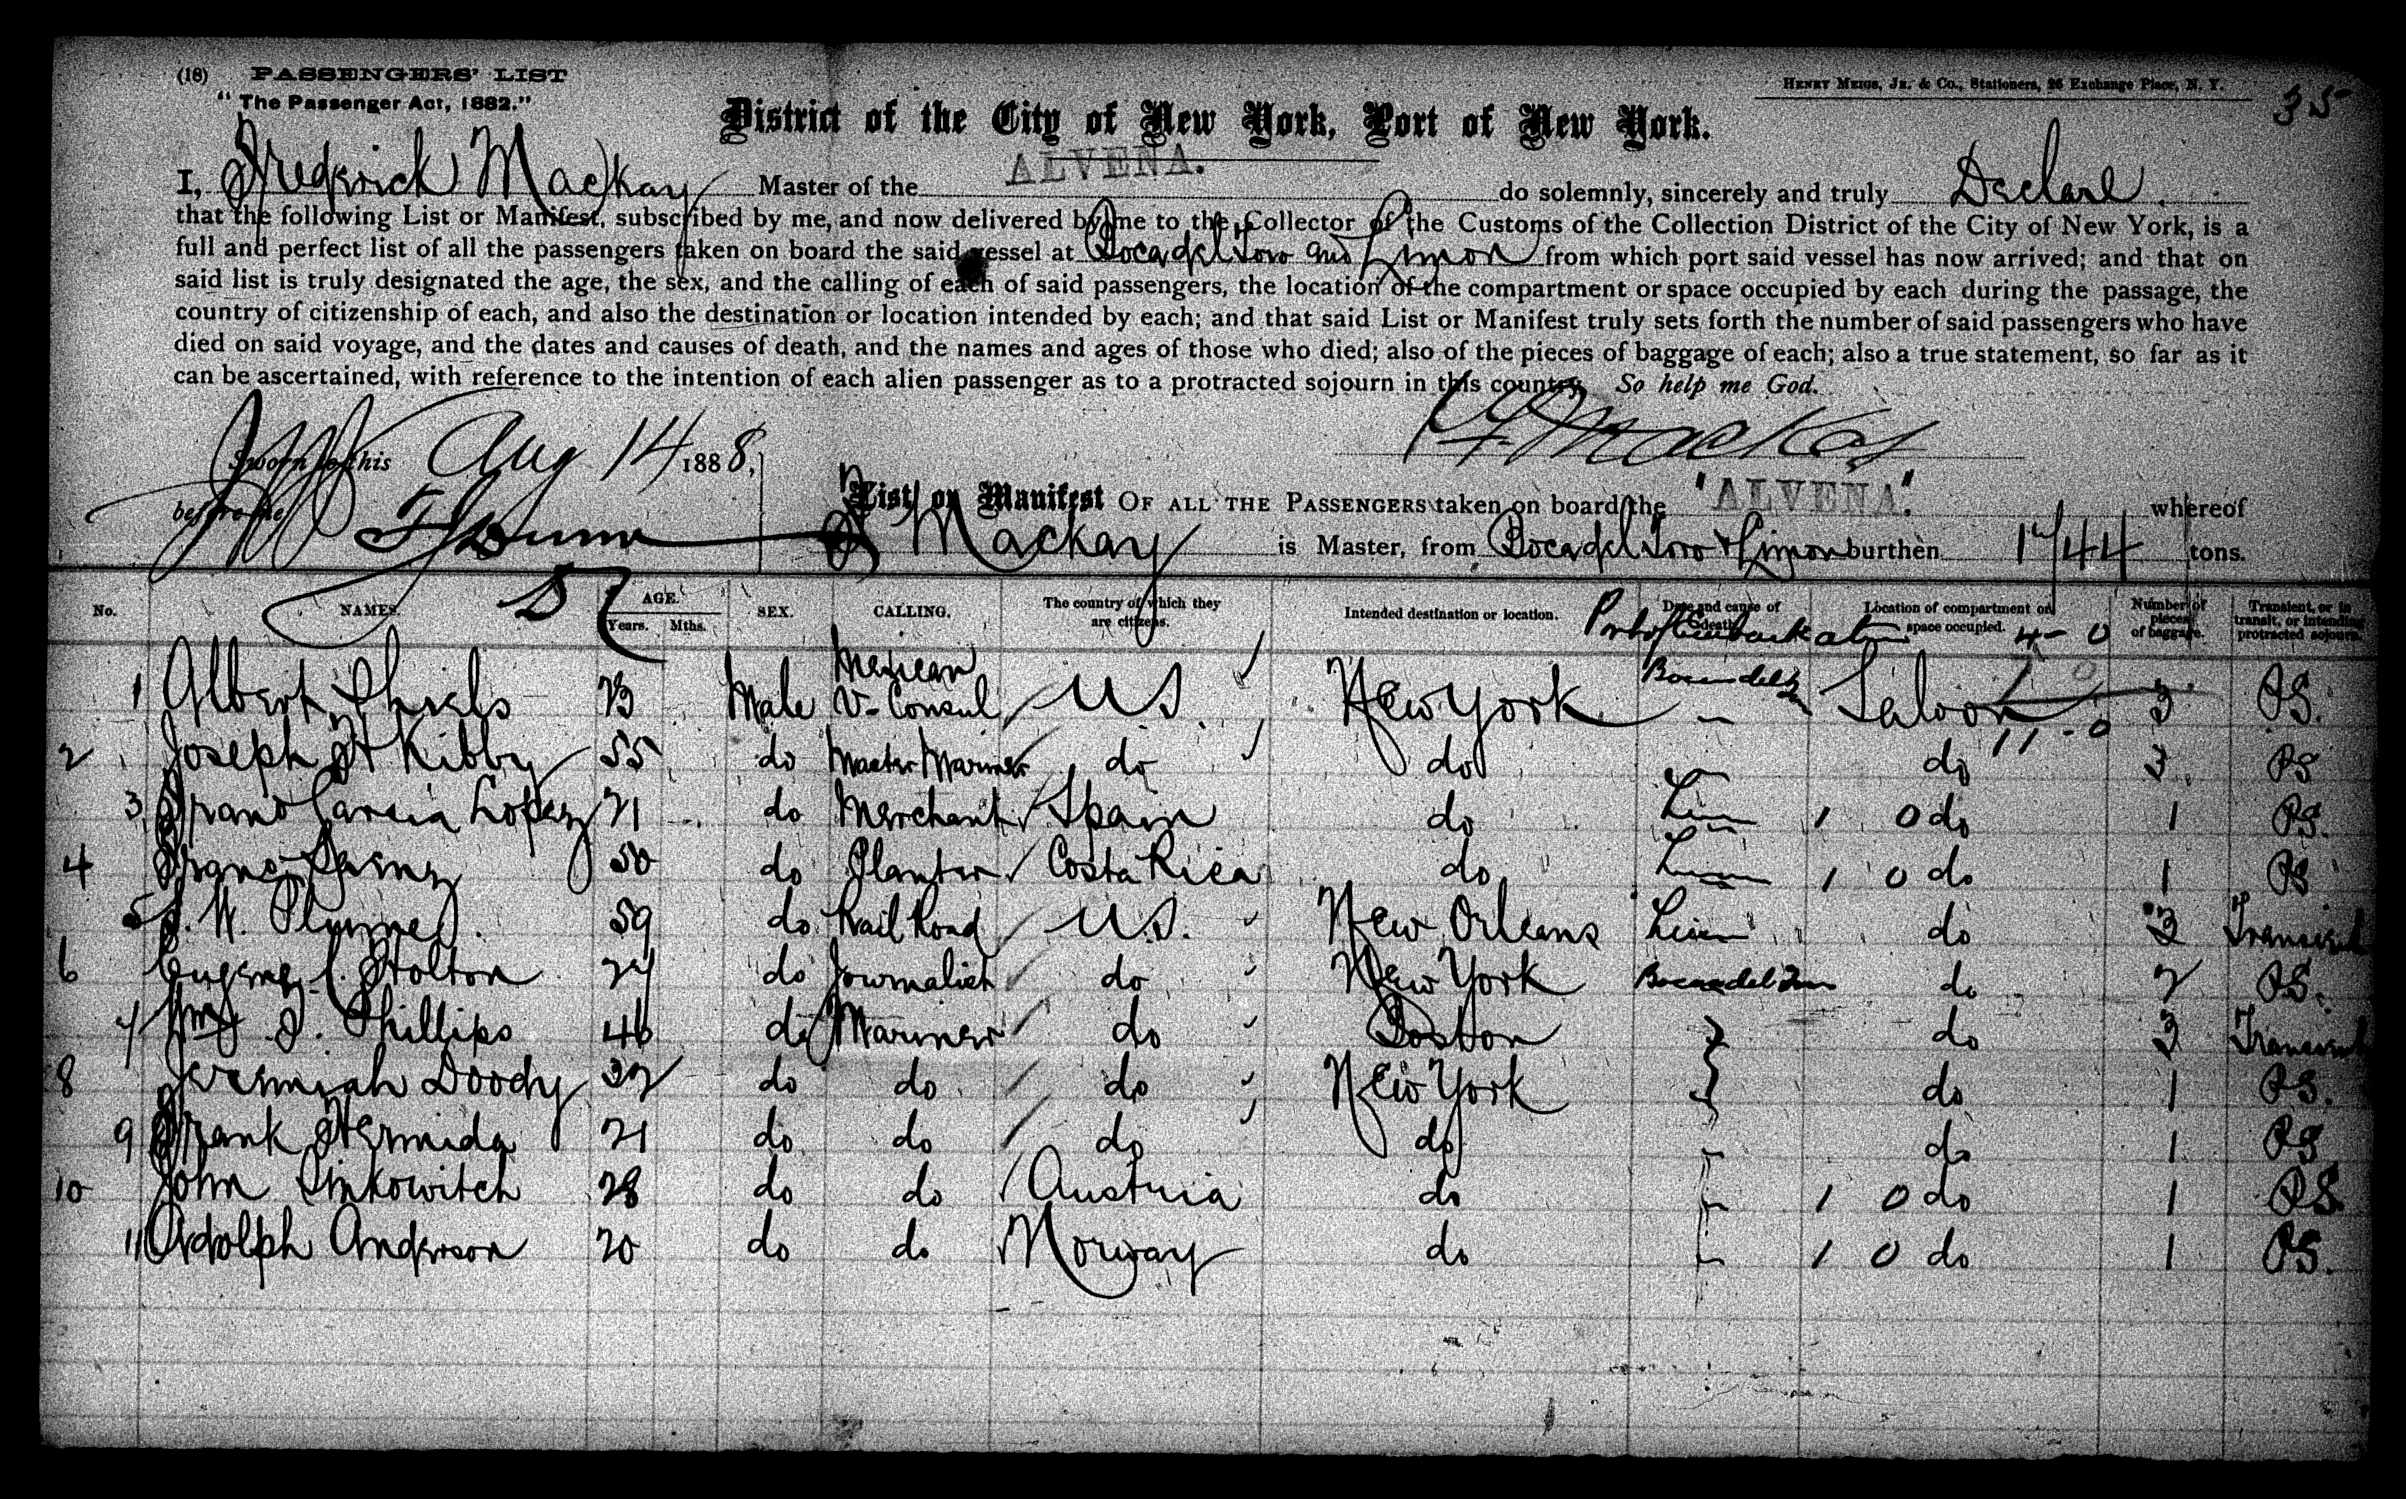 (18) PASSENGERS' LIST
"The Passenger Act, 1882."
HENRY MEIGS, JR. & Co., Stationers, 26 Exchange Place, N. Y.
35
District of the City of New York, Port of New York.
I, Frederick Mackay Master of the ALVENA. do solemnly, sincerely and truly Declare.
that the following List or Manifest, subscribed by me, and now delivered by me to the Collector of the Customs of the Collection District of the City of New York, is a
full and perfect list of all the passengers taken on board the said vessel at Bocadel Toro and Limon from which port said vessel has now arrived; and that on
said list is truly designated the age, the sex, and the calling of each of said passengers, the location of the compartment or space occupied by each during the passage, the
country of citizenship of each, and also the destination or location intended by each; and that said List or Manifest truly sets forth the number of said passengers who have
died on said voyage, and the dates and causes of death, and the names and ages of those who died; also of the pieces of baggage of each; also a true statement, so far as it
can be ascertained, with reference to the intention of each alien passenger as to a protracted sojourn in this country. So help me God.
F. Mackay
Sworn to this Aug 14 1888,
before me
List or Manifest OF ALL THE PASSENGERS taken on board the "ALVENA". whereof
F Mackay is Master, from Bocadel Toro & Limon burthen tons.
No. NAMES. AGE. Years. Mths. SEX. CALLING. The country of which they are citizens. Intended destination or location. Date and cause of death. Location of compartment or space occupied. Number of pieces of baggage. Transient, or in transit, or intending protracted sojourn.
Port of Embarkation 4-0
1 Albert Male Mexican V-Consul US New York Saloon 3 PS.
11-0
2 Joseph H Kibby 55 do Master Mariner do do do 3 PS
3 Garcia Lopez 21 do Merchant Spain do Lim 1 0 do 1 PS.
4 50 do Planter Costa Rica do Lim 1 0 do 1 PS
5 59 do Rail Road U.S. New Orleans Lim do 3 Transient
6 Eugene Stolton do Journalist do New York Bocadel Toro do 2 PS.
7 Wm J. Phillips 46 do Mariner do Boston do 3 Transient
8 Jeremiah Doody 32 do do do New York do 1 PS.
9 Frank Hermida 21 do do do do do 1 PS
10 John Sinkowitch 28 do do Austria do 1 0 do 1 PS.
11 Adolph Anderson 20 do do Norway do 1 0 do 1 PS.